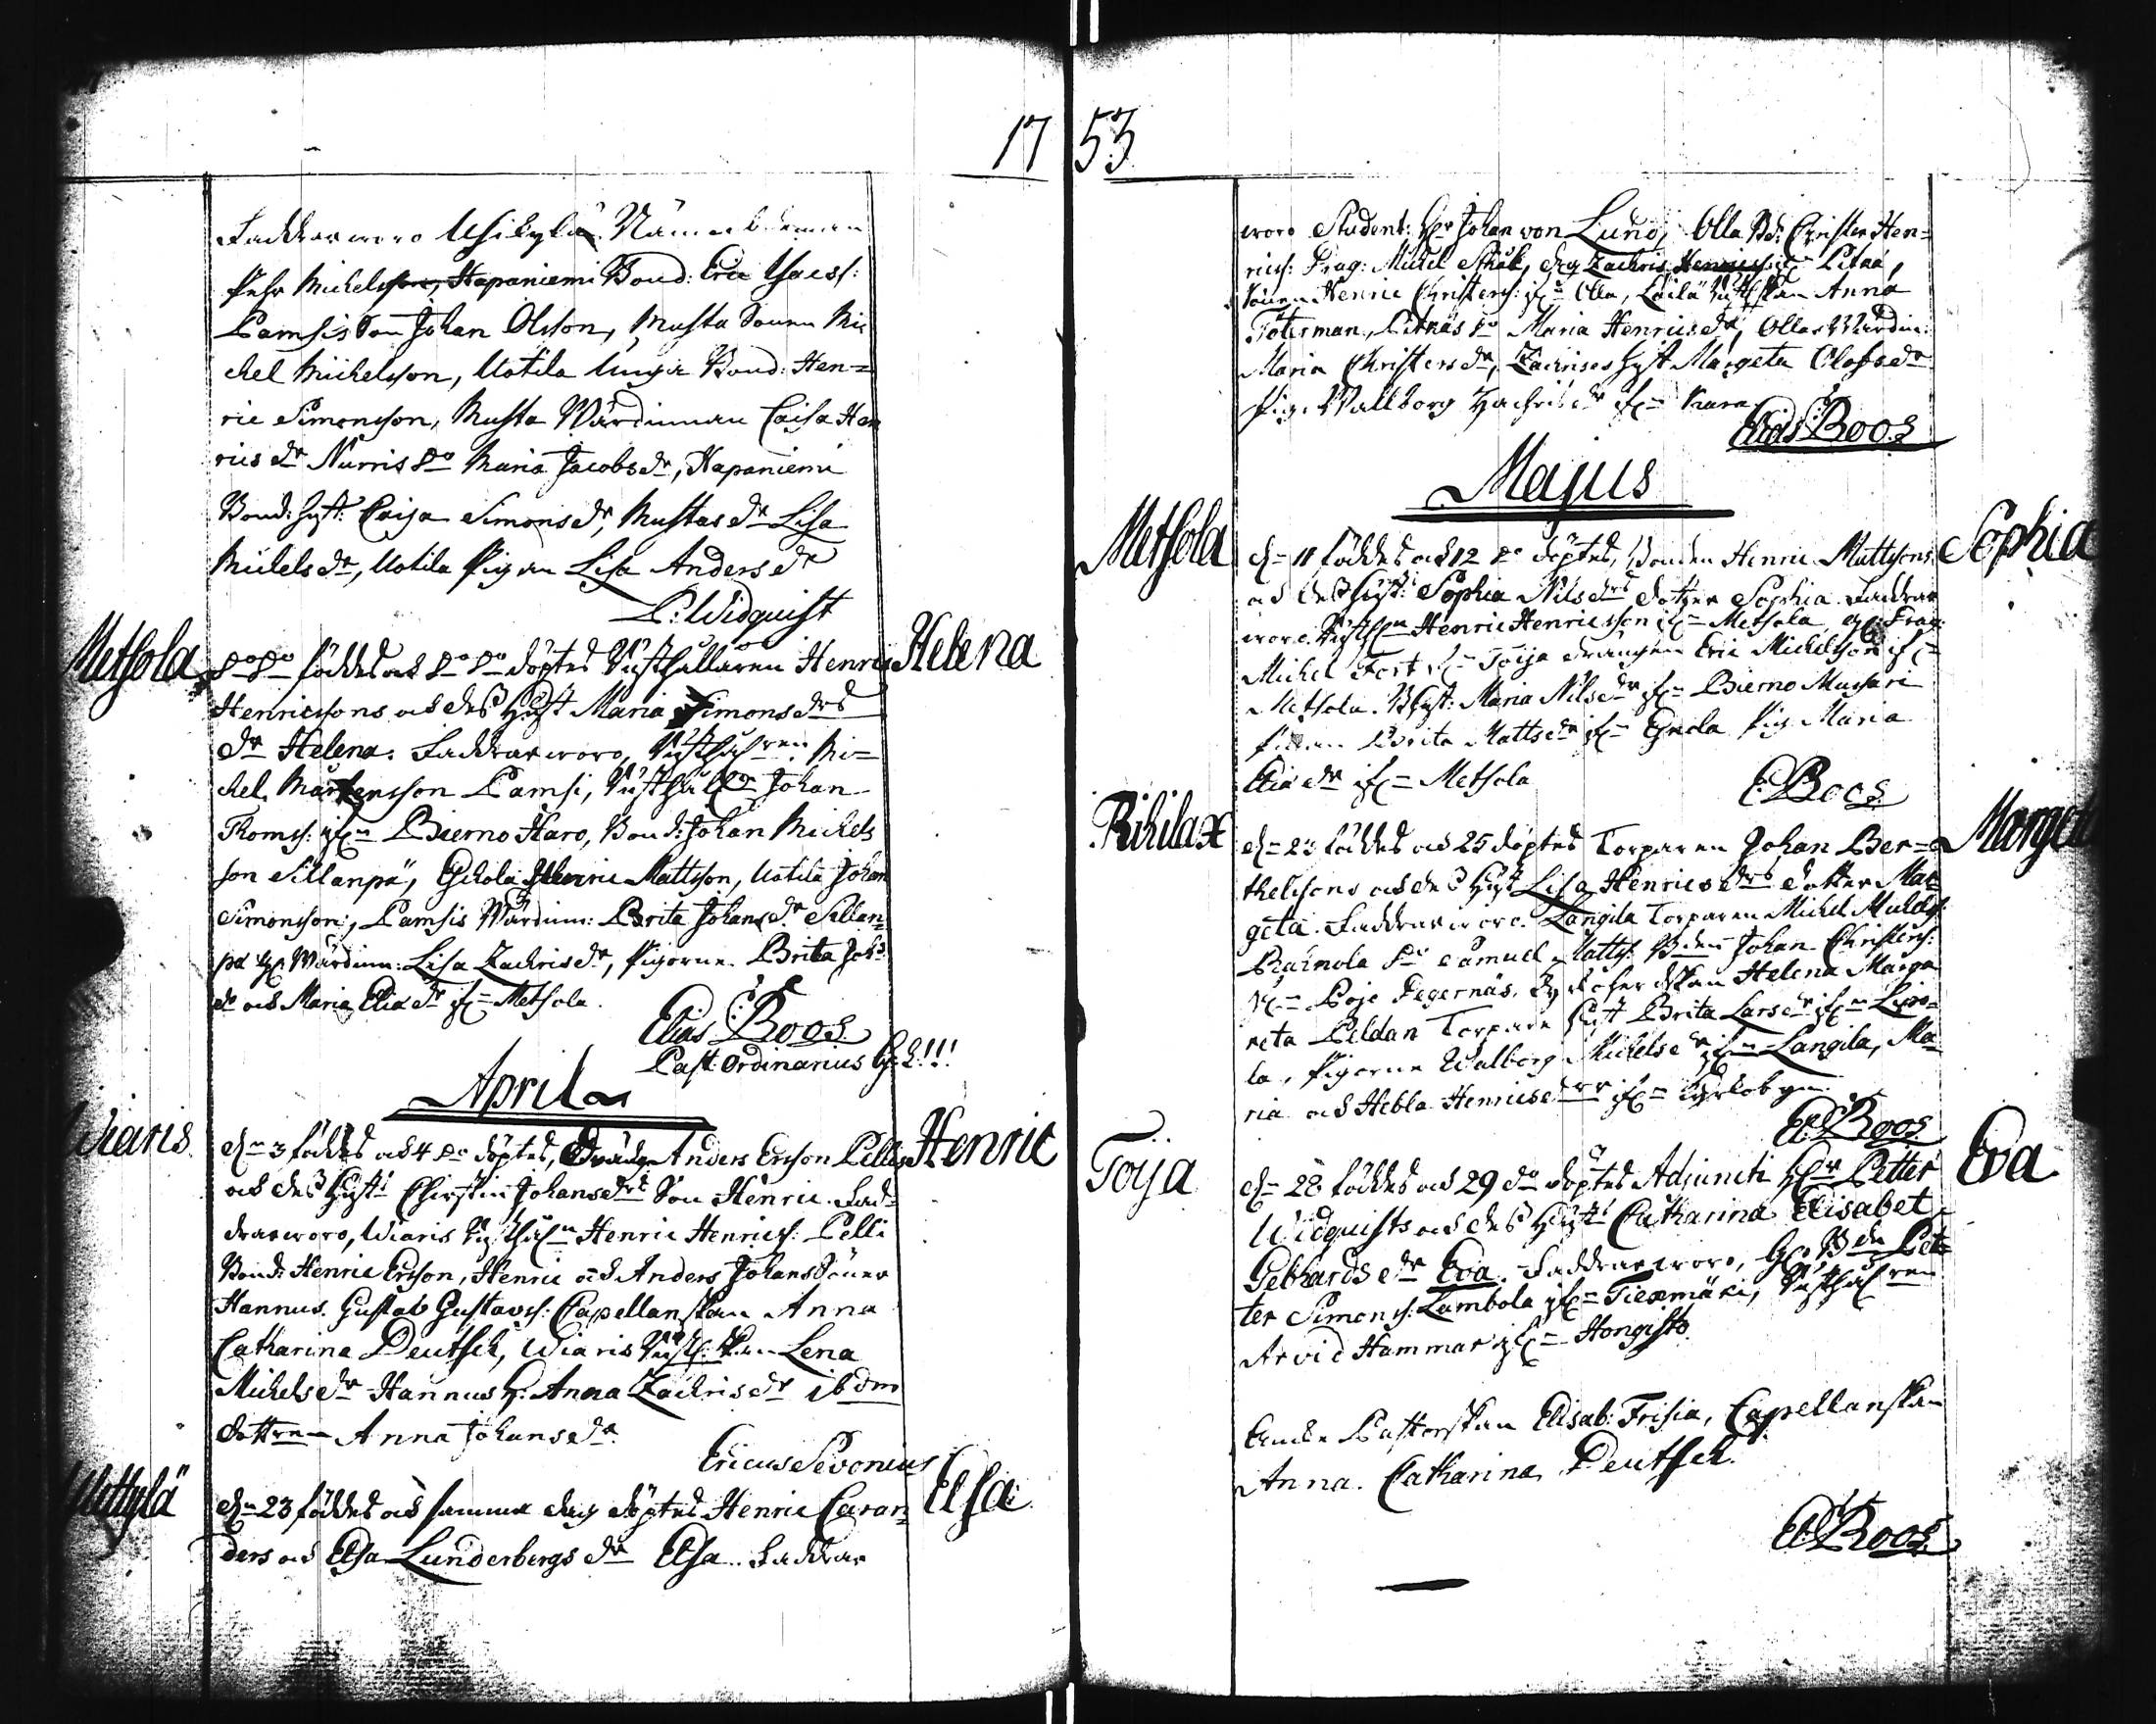 17 53
Faddrar woro Usikylä Nämndeman
Pehr Michelsson, Hapaniemi Bond: Eric Isacss:
Pamsis Son Johan Olsson, Musta Sonen Mi
chel Michelsson, Uotila Unga Bond: Hen=
ric Simonsson, Musta Wärdinnan Caisa Hen
rics dr Nurris do Maria Jacobs dr, Hapaniemi
Bond: Hust: Caisa Simons dr, Mustas dr Lisa
Michels dr, Uotila Pigan Lisa Anders dr
P: Widquist
Metsola
do do föddes och do do döptes Rusthållaren Henric
Helena
Henricssons och des Hust Maria Simons drs
dr Helena. Faddrar woro, Rusthålren. Mi=
chel Mårtensson Pamsi, Rusthåll Johan
Thomss: if Bierno Haro, Bond: Johan Michels
son Sillanpä, Eskola Henric Mattsson, Uotila Johan
Simonsson, Pamsis Wärdinn: Brita Johans dr Sillan=
pä Wärdinn: Lisa Zachris dr, Pigorne Brita Joh:
dr och Maria Elia dr if Metsola.
Elias Boos
Past: Ordinarius
April
Wiaris
dn 3 föddes och 4 do döptes, Anders Ersson Pelli
Henric
och des Hust: Chirstin Johans drs Son Henric. Fad=
drar woro, Wiaris Henric Henricss: Pelli
Bond: Henric Ersson, Henric och Anders Johans Söner
Hannus. Gustab Gustavss: Capellanskan Anna
Catharina Deutsch, Wiaris Lena
Michels dr Hannus h: Anna Zachris dr ibdm
dottren Anna Johans dr.
Ericus Sevonius
Mettylä
dn 23 föddes och samma dag döptes Henric Caran=
Elsa
ders och Elsa Lunderbergs dr Elsa. Faddrar
woro Student: Hr Johan von Lund, Olla Bd: Christer Hen=
ricss: Drag: Michel Skåk, Zachris Henricss: Pitnä,
Sonen Henric Christerss: Olla, Lailä Anna
Töterman, Pitnäs do Maria Henrics dr, Ollas Wärdin:
Maria Christers dr, Zachrises Hust Margeta Olofs dr
Pig: Wallborg Zachris dr if Kara
Elias Boos
Majus
Metsola
dn 11 föddes och 12 do döptes, Bonden Henric Mattssons
Sophia
och des Hust: Sophia Nils drs dotter Sophia. Faddrar
woro. Henric Henricsson if Metsola, Drag:
Michel Fort if Toija drängen Eric Michelsson if
Metsola. Hust: Maria Nils dr if Bierno Mussari
Pigan Brita Matts dr if Eskola Pig: Maria
Elia dr if Metsola
E: Boos
Rikilax
dn 23 föddes och 25 döptes Torparen Johan Ber=
Margeta
thelssons och des Hust Lisa Henrics drs dotter Mar
geta. Faddrar woro. Langila Torparen Michel Michelss:
Rainola do Samuel Mattss: Johan Christerss:
if Pojo Degernäs, Helena Marga
reta Peldan Torpare Hust Brita Lars dr if Liro=
la, Pigorne Walborg Michels dr if Langila, Ma=
ria och Hebla Henrics drr if
E: Boos
Toija
dn 28 föddes och 29 do döptes Adjuncti Hr Petter
Eva
Widquists och des Hust: Catharina Elisabet
Gebhards dr Eva. Faddrar woro, Pet=
ter Simonss: Lambola if Tiexmäki, Rusthålren
Arvid Hammar if Hongisto.
Pastorskan Elisab: Frisia, Capellanskan
Anna Catharina Deutsch.
E: Boos